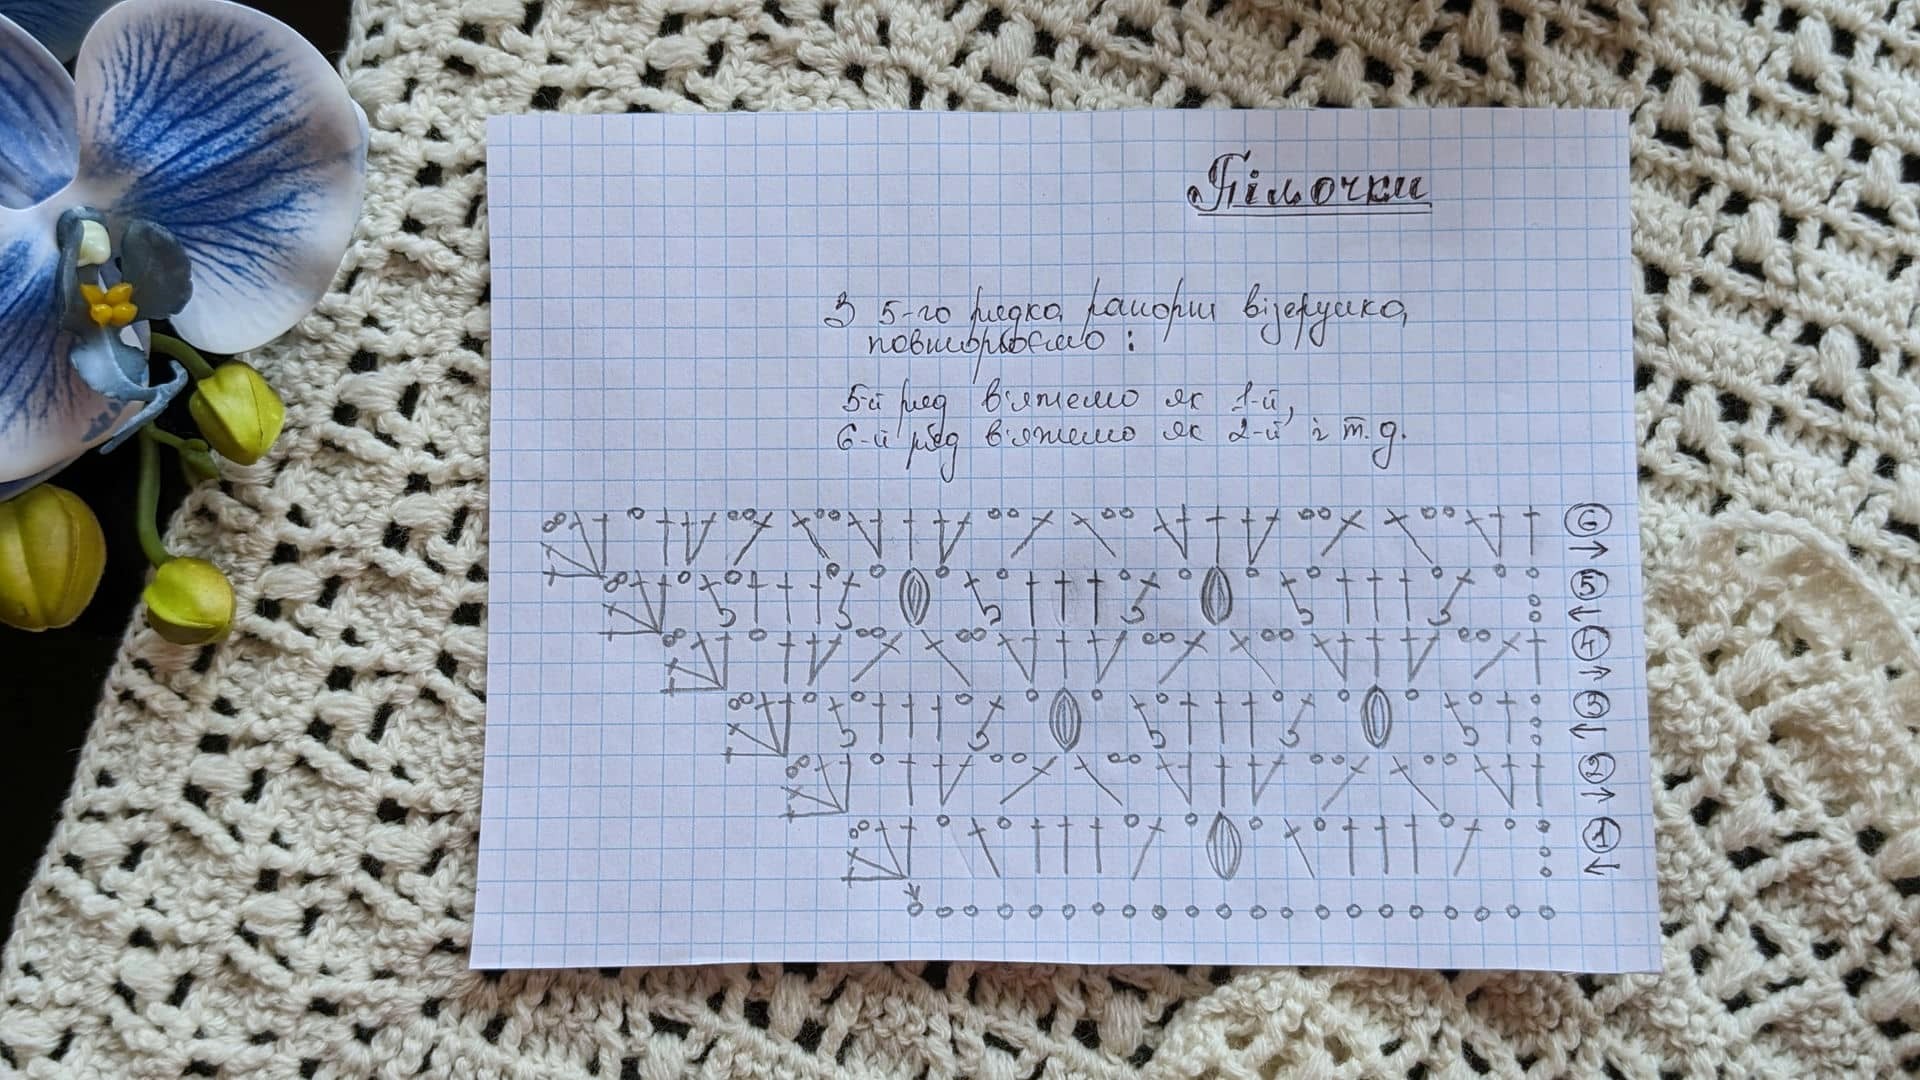 Гілочки
З 5-го рядка рапорт візерунка
повторюємо:
5-й ряд в'яжемо як 1-й,
6-й ряд в'яжемо як 2-й і т.д.
6
5
4
3
2
1